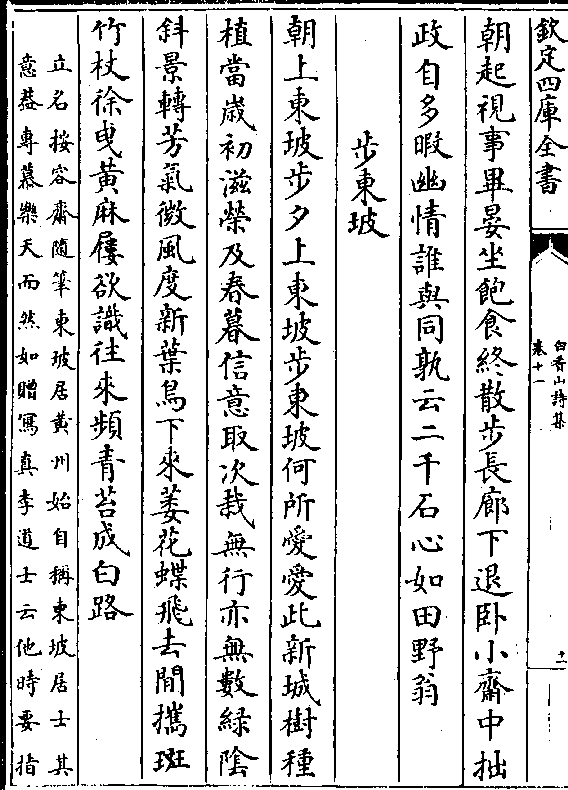 欽定四庫全書
白香山詩集
卷十一
十一
朝起視事畢晏坐飽食終散步長廊下退卧小齋中拙
政自多暇幽情誰與同孰云二千石心如田野翁
步東坡
朝上東坡步夕上東坡步東坡何所愛愛此新城樹種
植當歲初滋榮及春暮信意取次栽無行亦無數綠陰
斜景轉芳氣微風度新葉鳥下來萎花蝶飛去閒攜斑
竹杖徐曳黃麻屨欲識往來頻青苔成白路
立名按容齋隨筆東坡居黃州始自稱東坡居士其
意葢專慕樂天而然如贈寫真李道士云他時要指